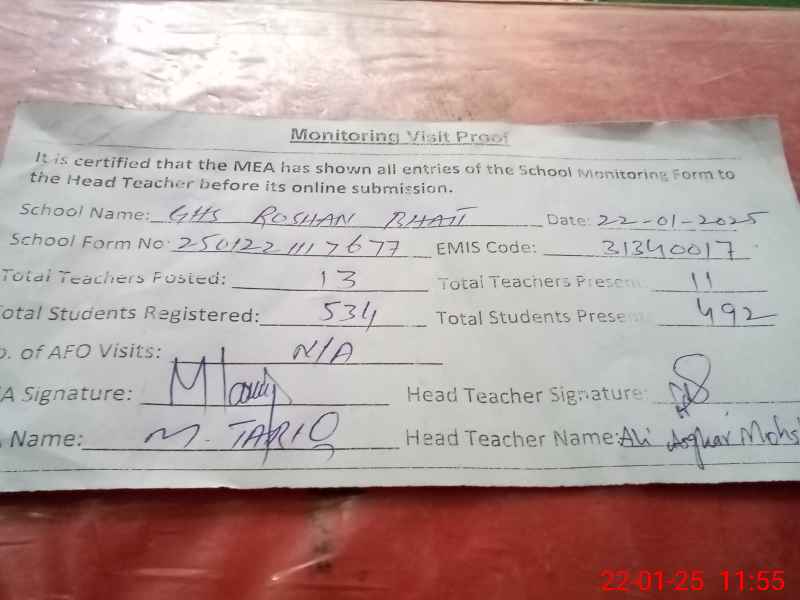 Monitoring Visit Proof
It is certified that the MEA has shown all entries of the School Monitoring Form to
the Head Teacher before its online submission.
School Name: GHS ROSHAN BHATI Date: 22-01-2025
School Form No: 2501221117677 EMIS Code: 31340017
Total Teachers Posted: 13 Total Teachers Present: 11
Total Students Registered: 534 Total Students Present 492
o. of AFO Visits: N/A
A Signature: Head Teacher Signature:
Name: M. TARIQ Head Teacher Name: Ali Asghar Mohs
22-01-25 11:55